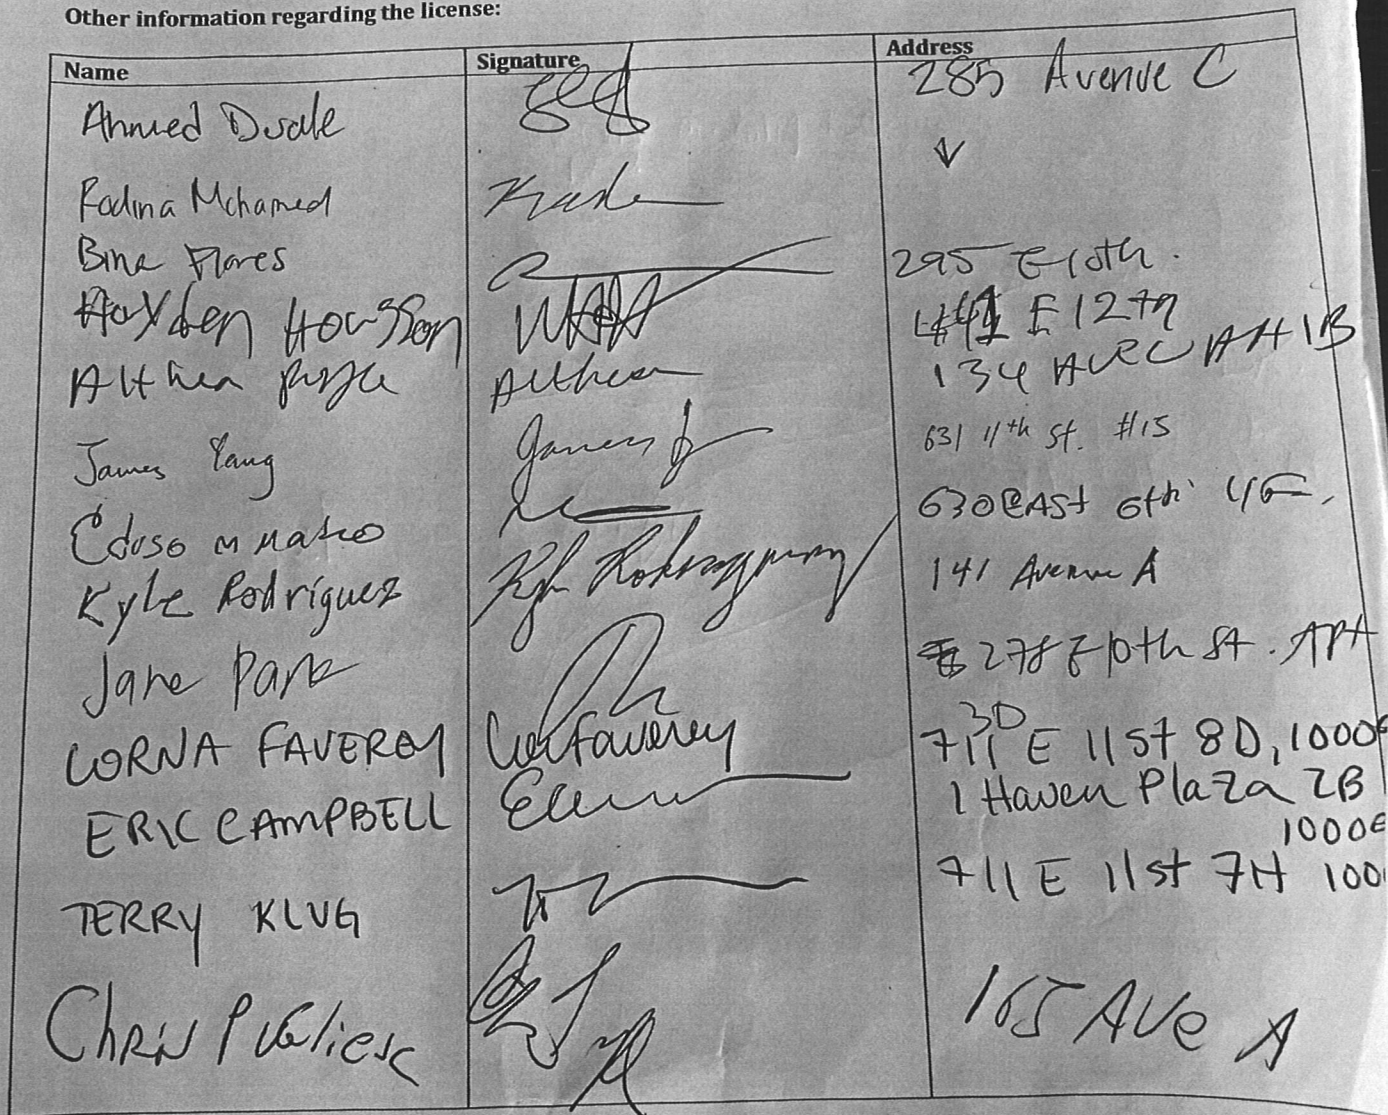 Other information regarding the license:
Name Signature Address
Ahmed Duale 285 Avenue C
Rodina Mohamed
Bina Flores 295 E 10th.
Hayden Housson 441 E 12th
Althea Althea 134 Ave C Apt 1B
James Yang James 631 11th St. #15
630 East 6th
Kyle Rodriguez Kyle 141 Avenue A
Jane Park 278 E 10th St. Apt
3D
LORNA FAVEREY Faverey 711 E 11 St 8D, 1000
ERIC CAMPBELL 1 Haven Plaza 2B
1000
TERRY KLUG 711 E 11 St 7H 100
Chris Pugliese 165 Ave A